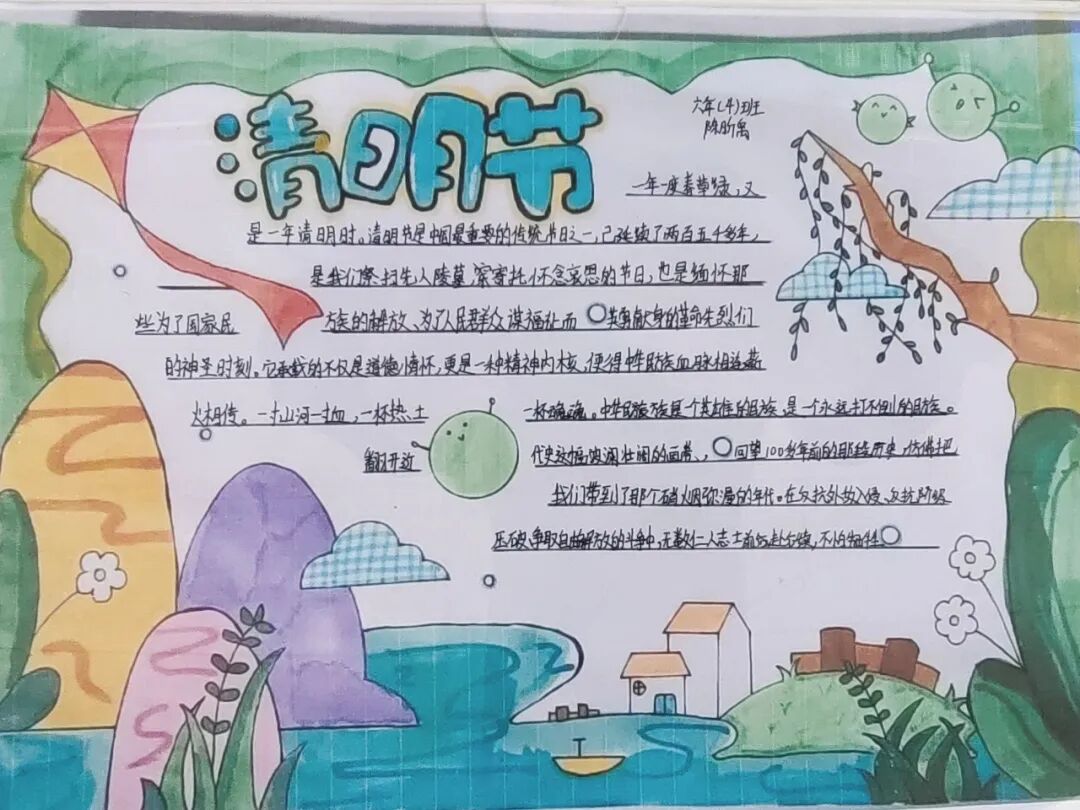 清明节
六年(4)班
陈昕禹
一年一度春草绿,又
是一年清明时。清明节是中国最重要的传统节日之一,已延续了两百五千多年,
是我们祭扫先人陵墓,寄托怀念哀思的节日,也是缅怀那
些为了国家民 族的解放、为了人民群众谋福祉而 英勇献身的革命先烈们
的神圣时刻。它承载的不仅是道德情怀,更是一种精神内核,使得中华民族血脉相连,薪
火相传。一寸山河一寸血,一杯热土 一杯魂。中华民族是个英雄的民族,是一个永远打不倒的民族。
翻开近 代史这幅波澜壮阔的画卷,回望100多年前的那段历史,仿佛把
我们带到了那个硝烟弥漫的年代。在反抗外敌入侵、反抗阶级
压破、争取自由解放的斗争中,无数仁人志士前赴 不怕牺牲